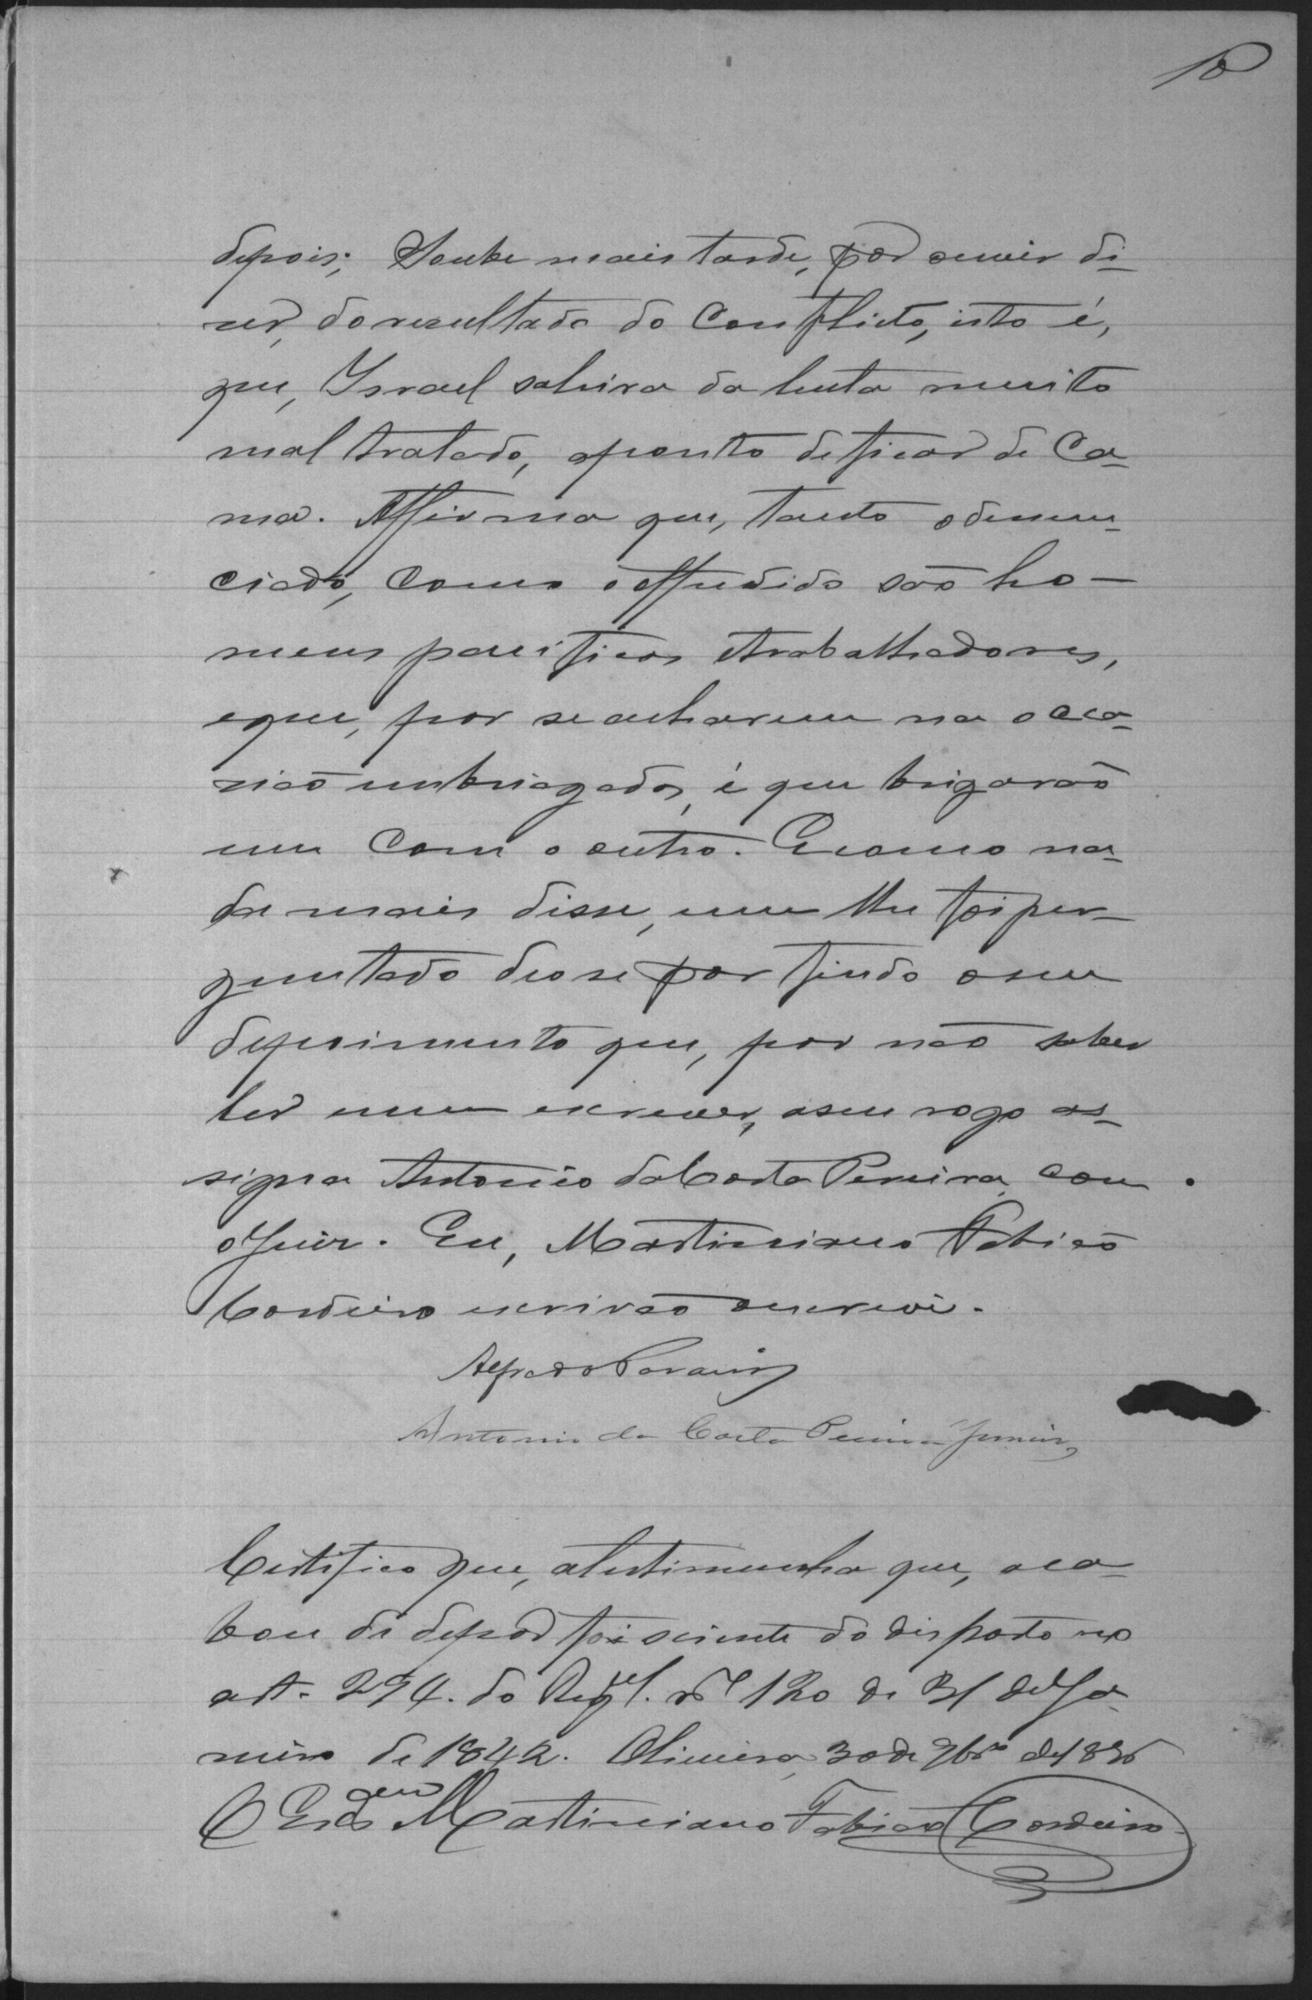 10
depois; Soube mais tarde, por ouvir di-
zer, do resultado do Conflicto, isto é,
que, Israel sahira da lucta muito
mal tratado, aponto de ficar de Ca-
ma. Affirma que, tanto o denun-
ciado, como o offendido são ho-
mens pacificos etrabalhadores,
eque, por se acharem na occa-
sião embriagados, é que brigarão
um com o outro. Ecomo na-
da mais disse, nem lhe foi per-
guntado deose por findo oseu
depoimento que, por não saber
ler nem escrever, aseu rogo as-
signa Antonio da Costa Pereira, com
o Juiz. Eu, Martiniano Fabião
Cordeiro escrivão oescrevi.
Alfredo
Antonio da Costa Pereira Junior
Certifico que, atestimunha que, aca-
bou de depor foi sciente do disposto no
art. 294. do Regul. nº 120 de 31 de Ja-
neiro de 1842. Oliveira, 30 de 9bro de
O Esc.am Martiniano Fabião Cordeiro